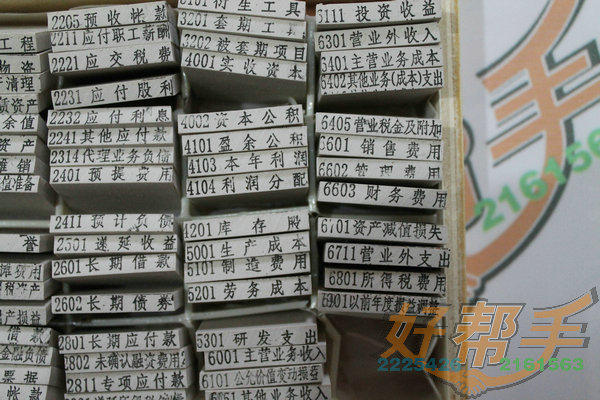 工程
物资
清理
资产
余值
资产
摊销
值准备
誉
摊费用
产损益
借款
金融负债
票据
账款
2205 预收账款
2211 应付职工薪酬
2221 应交税费
2231 应付股利
2232 应付利息
2241 其他应付款
2314 代理业务负债
2401 预提费用
2411 预计负债
2501 递延收益
2601 长期借款
2602 长期债券
2801 长期应付款
2802 未确认融资费用
2811 专项应付款
3101 衍生工具
3201 套期工具
3202 被套期项目
4001 实收资本
4002 资本公积
4101 盈余公积
4103 本年利润
4104 利润分配
4201 库存股
5001 生产成本
5101 制造费用
5201 劳务成本
5301 研发支出
6001 主营业务收入
6101 公允价值变动损益
6051 其他业务收入
3111 投资收益
6301 营业外收入
6401 主营业务成本
6402 其他业务(成本)支出
6405 营业税金及附加
6601 销售费用
6602 管理费用
6603 财务费用
6701 资产减值损失
6711 营业外支出
6801 所得税费用
6901 以前年度损益调整
手
2161563
好帮手
2223426
2161563